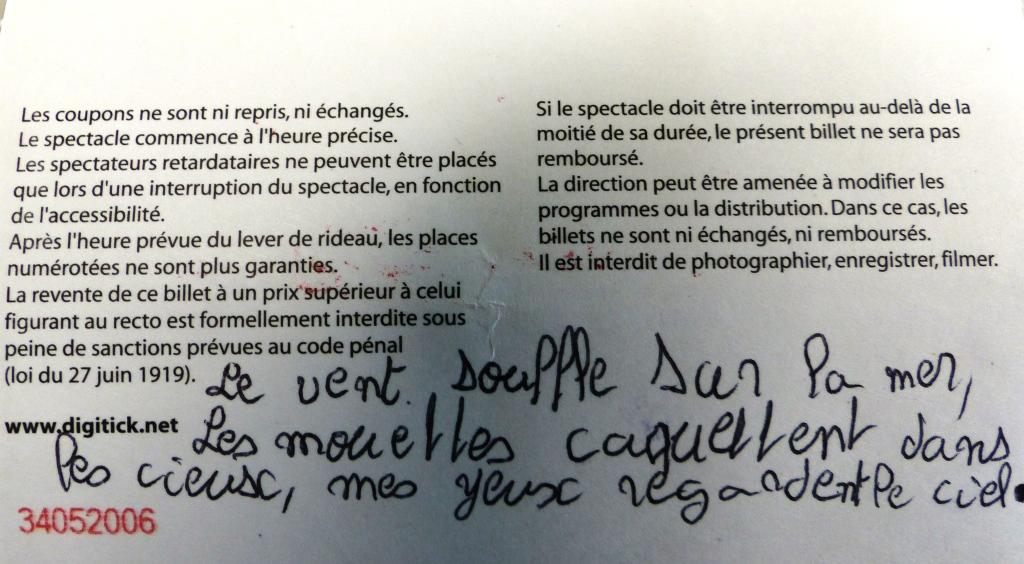 Les coupons ne sont ni repris, ni échangés.
Le spectacle commence à l'heure précise.
Les spectateurs retardataires ne peuvent être placés
que lors d'une interruption du spectacle, en fonction
de l'accessibilité.
Après l'heure prévue du lever de rideau, les places
numérotées ne sont plus garanties.
La revente de ce billet à un prix supérieur à celui
figurant au recto est formellement interdite sous
peine de sanctions prévues au code pénal
(loi du 27 juin 1919).
www.digitick.net
Si le spectacle doit être interrompu au-delà de la
moitié de sa durée, le présent billet ne sera pas
remboursé.
La direction peut être amenée à modifier les
programmes ou la distribution. Dans ce cas, les
billets ne sont ni échangés, ni remboursés.
Il est interdit de photographier, enregistrer, filmer.
Le vent souffle sur la mer,
Les mouettes caquettent dans
les cieux, mes yeux regardent le ciel.
34052006